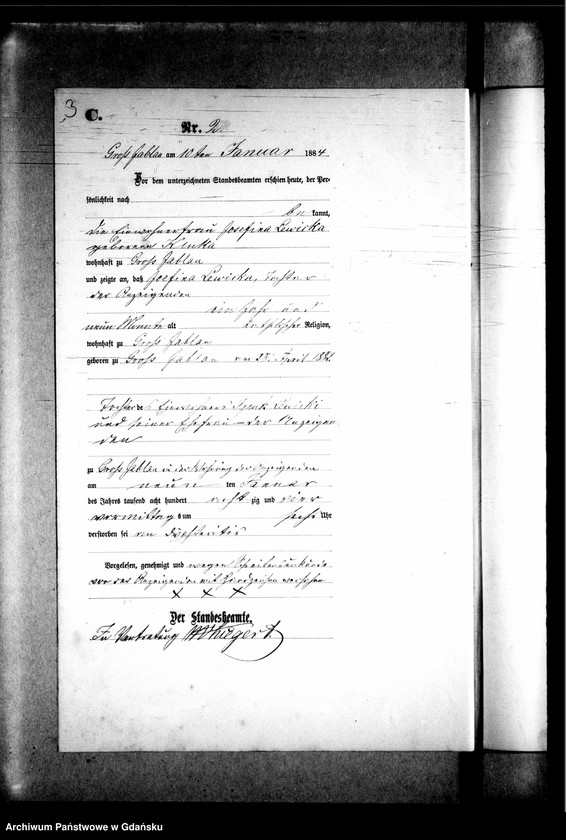 3
C.
Nr. 2.
Groß Jablau am 10 ten Januar 1884
Vor dem unterzeichneten Standesbeamten erschien heute, der Per-
sönlichkeit nach
be kannt,
die Einwohnerfrau Josefina Lewicka
geborene Kluka
wohnhaft zu Groß Jablau
und zeigte an, daß Josefina Lewicka, Tochter
der Anzeigenden
ein Jahr und
neun Monate alt katholischer Religion,
wohnhaft zu Groß Jablau
geboren zu Groß Jablau am April 188
Tochter des Einwohners
und seiner Ehefrau der Anzeigen
den
zu Groß Jablau in der Wohnung der Anzeigenden
am neun ten Januar
des Jahres tausend acht hundert acht zig und vier
vormittags um sechs Uhr
verstorben sei an Diphteritis
Vorgelesen, genehmigt und wegen
von der Anzeigenden mit Handzeichen versehen
x x x
Der Standesbeamte.
In Vertretung
Archiwum Państwowe w Gdańsku